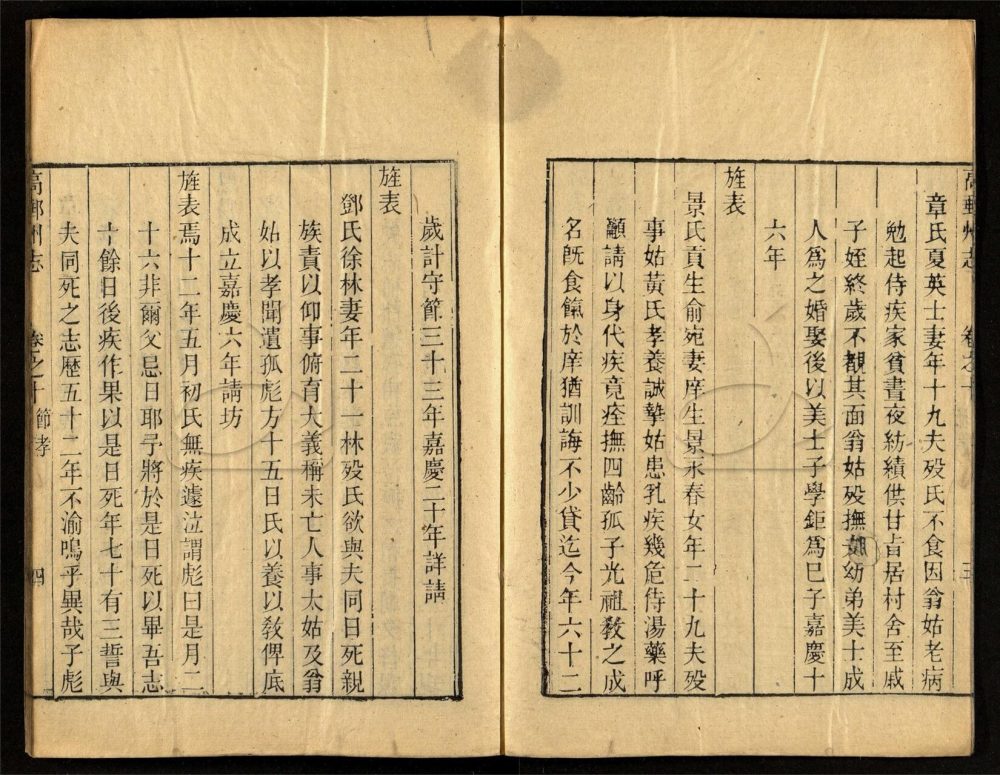 高郵州志 卷之十 五
章氏夏英士妻年十九夫歿氏不食因翁姑老病
勉起侍疾家貧晝夜紡績供甘旨居村舍至戚
子姪終歲不覩其面翁姑歿撫幼弟美士成
人爲之婚娶後以美士子學鉅爲巳子嘉慶十
六年
旌表
景氏貢生俞宛妻庠生景永春女年二十九夫歿
事姑黃氏孝養誠摯姑患乳疾幾危侍湯藥呼
籲請以身代疾竟痊撫四齡孤子光祖敎之成
名旣食餼於庠猶訓誨不少貸迄今年六十二
歲計守節三十三年嘉慶二十年詳請
旌表
鄧氏徐林妻年二十一林歿氏欲與夫同日死親
族責以仰事俯育大義稱未亡人事太姑及翁
姑以孝聞遺孤彪方十五日氏以養以敎俾底
成立嘉慶六年請坊
旌表焉十二年五月初氏無疾遽泣謂彪曰是月二
十六非爾父忌日耶予將於是日死以畢吾志
十餘日後疾作果以是日死年七十有三誓與
夫同死之志歷五十二年不渝嗚乎異哉子彪
高郵州志 卷之十 節孝 四